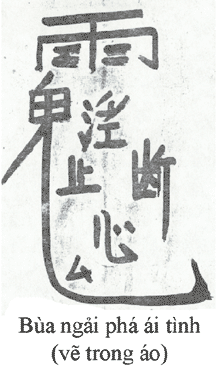 雨
鬼
止 断
心
Bùa ngải phá ái tình
(vẽ trong áo)